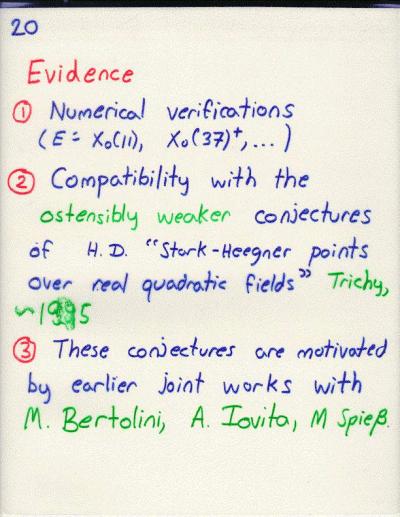 20
Evidence
① Numerical verifications
(E = X₀(11), X₀(37)⁺,...)
② Compatibility with the
ostensibly weaker conjectures
of H.D. "Stark-Heegner points
over real quadratic fields" Trichy,
~1995
③ These conjectures are motivated
by earlier joint works with
M. Bertolini, A. Iovita, M Spieß.